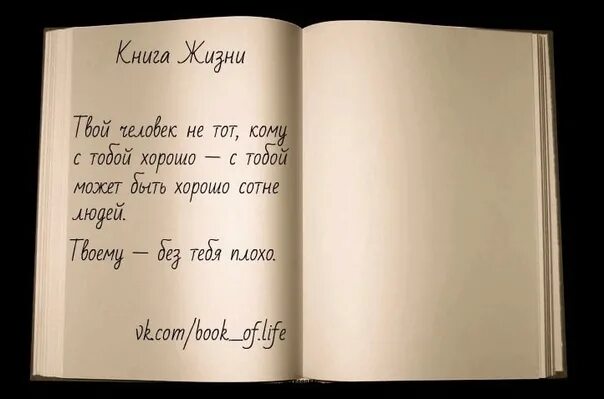 Книга Жизни
Твой человек не тот, кому
с тобой хорошо — с тобой
может быть хорошо сотне
людей.
Твоему — без тебя плохо.
vk.com/book_of.life